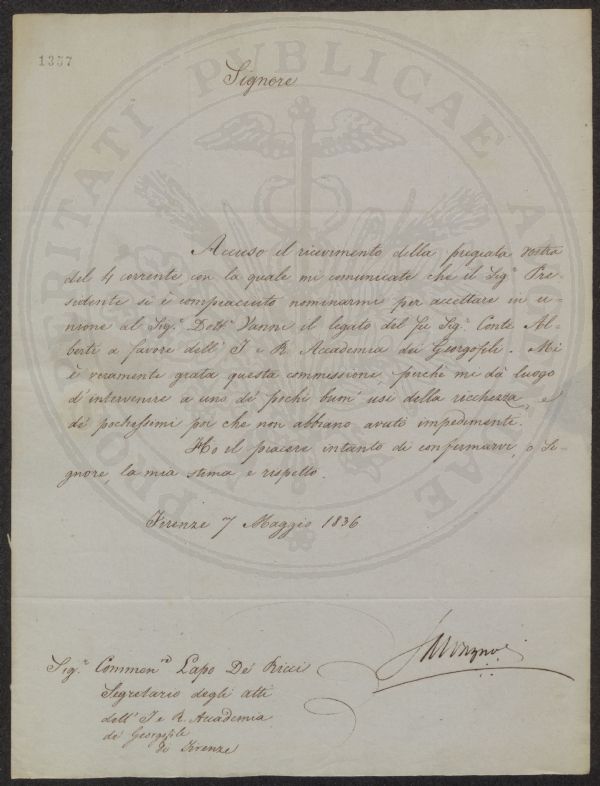 1337
Signore
Accuso il ricevimento della pregiata vostra
del 4 corrente con la quale mi comunicate che il Sig.r Pre-
sidente si è compiaciuto nominarmi per accettare in u-
nione al Sig.r Dott.r Vanni il legato del fu Sig.r Conte Al-
berti a favore dell' I e R. Accademia dei Georgofili. Mi
è veramente grata questa commissione, perchè mi dà luogo
d'intervenire a uno de' pochi buon' usi della ricchezza, e
de' pochissimi poi che non abbiano avuto impedimenti.
Ho il piacere intanto di confermarvi, o Si-
gnore, la mia stima e rispetto.
Firenze 7 Maggio 1836
Sig.r Commen.re Lapo De' Ricci
Segretario degli atti
dell' I e R. Accademia
de' Georgofili
di Firenze
PROSPERITATI PUBLICAE AUGENDAE